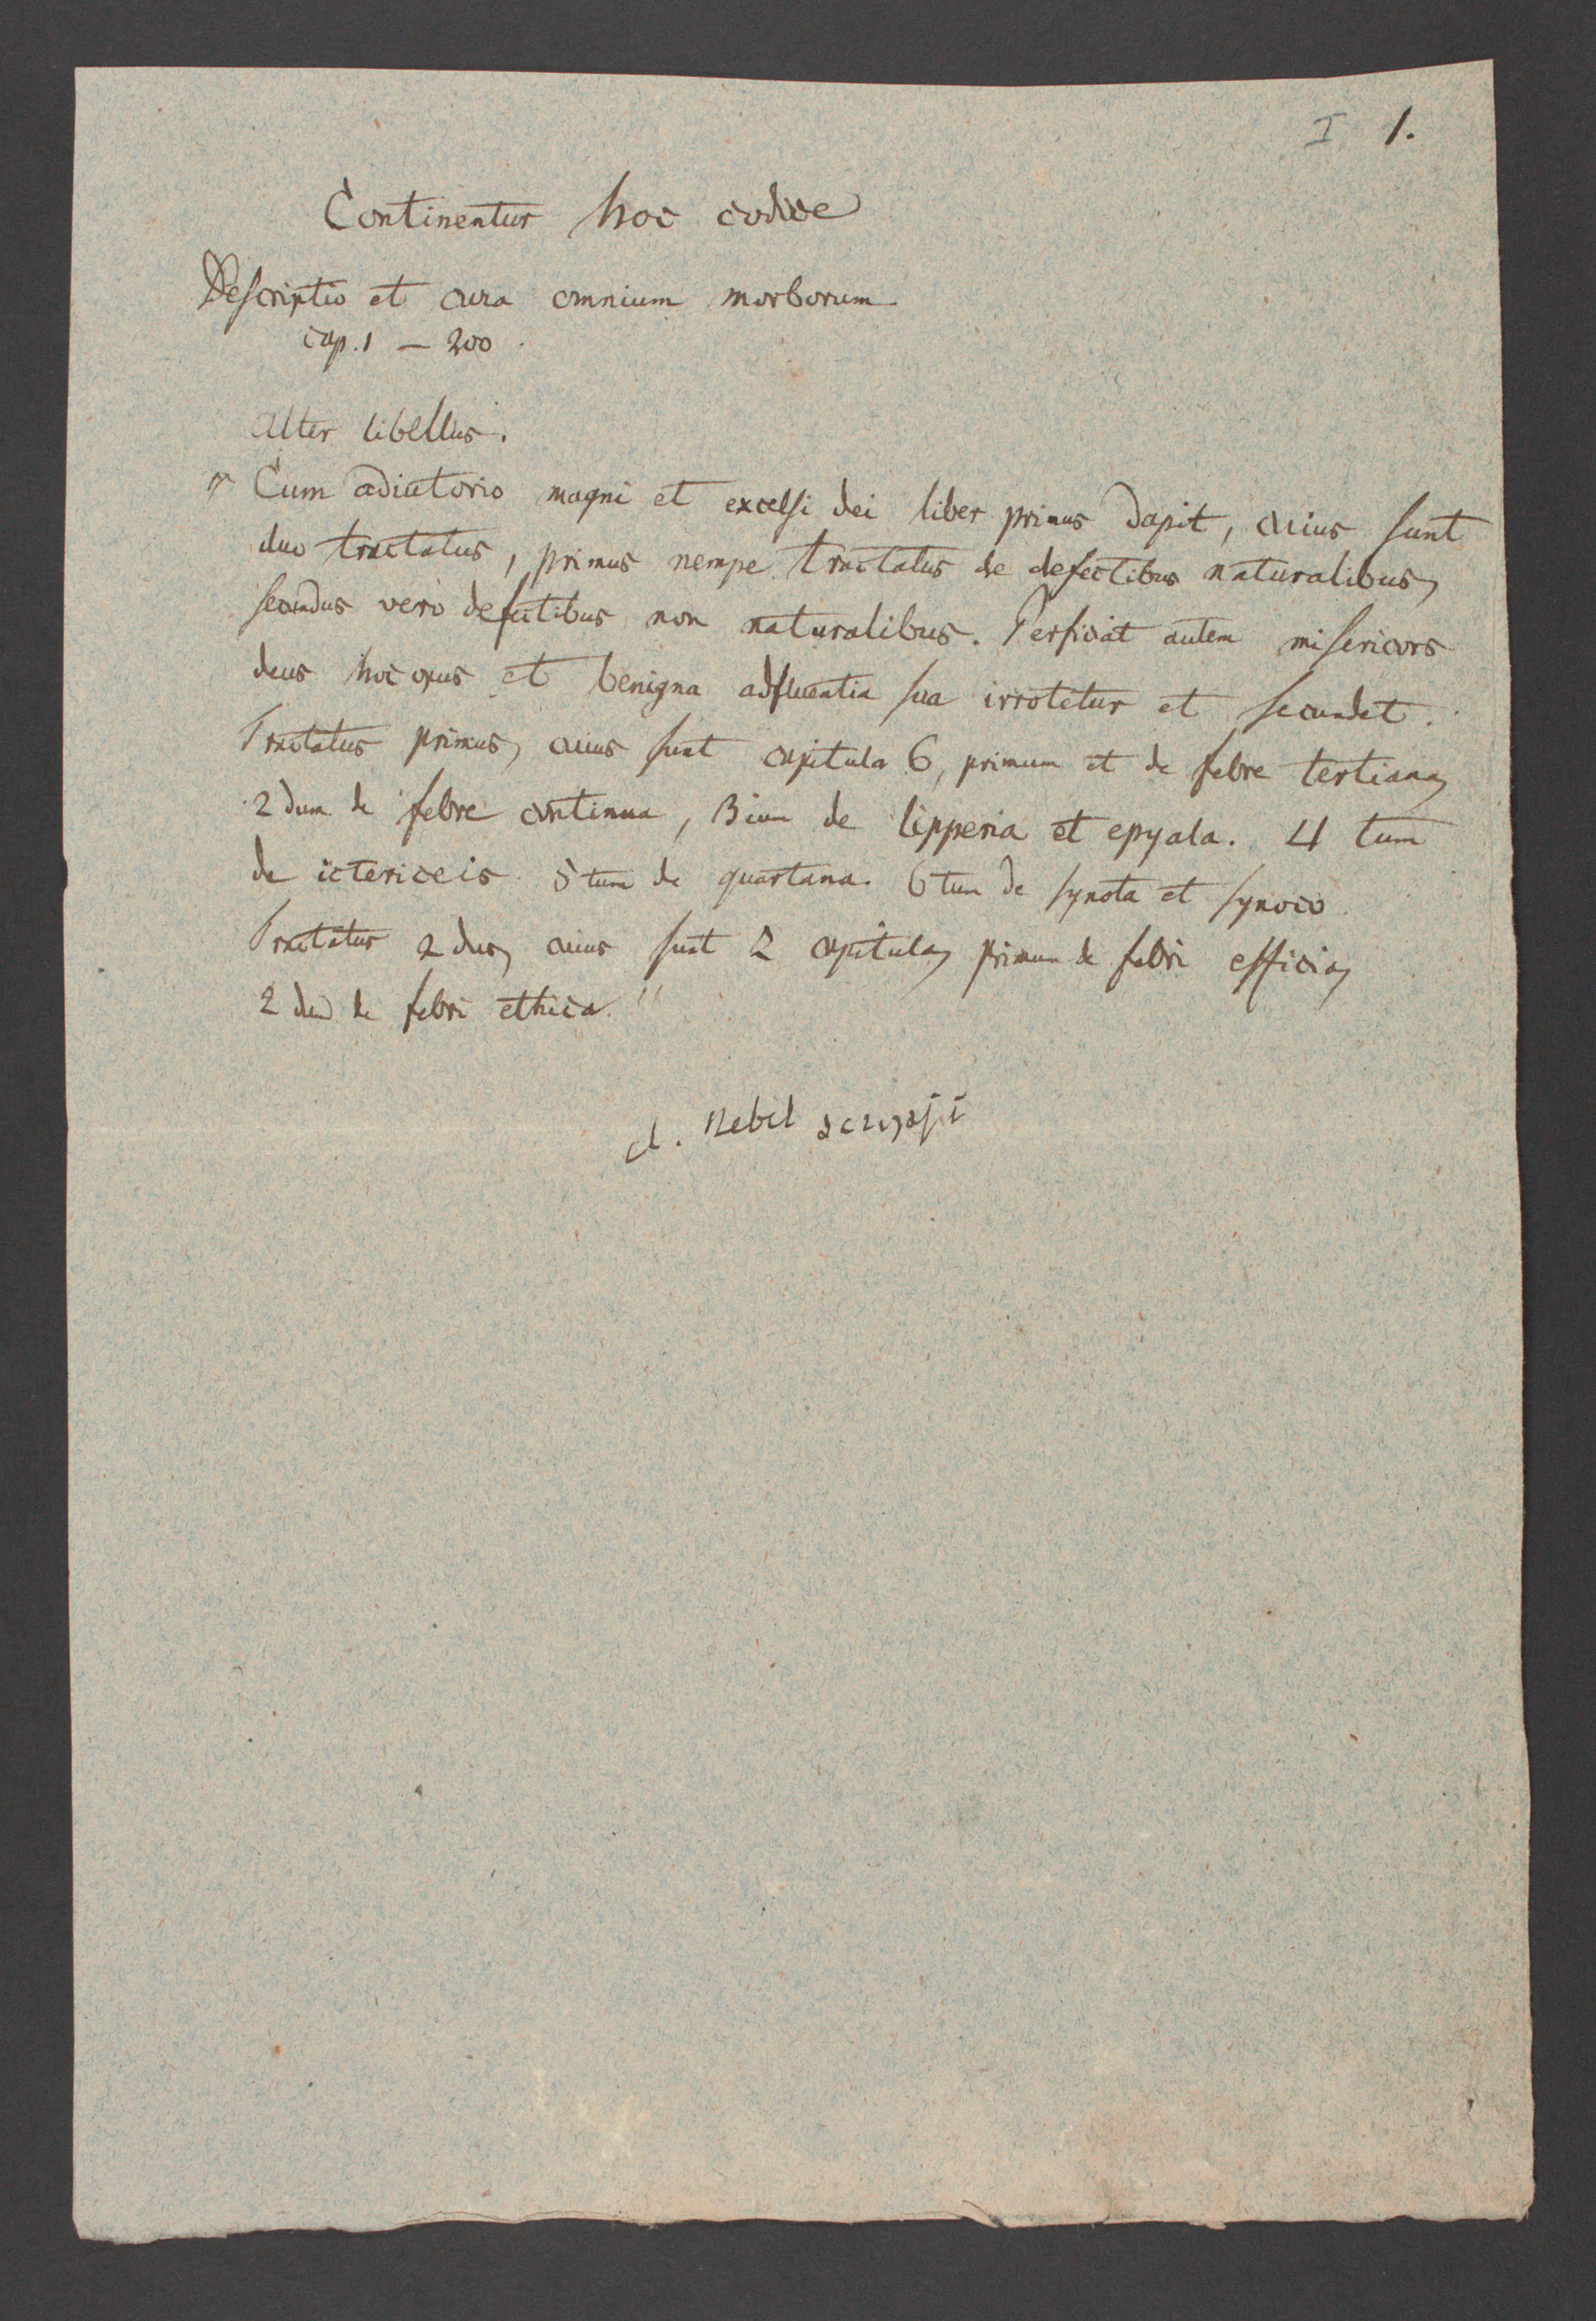 I 1.
Continentur hoc codice
Descriptio et cura omnium morborum.
cap. 1 — 200.
Alter libellus.
" Cum adiutorio magni et excelsi dei liber primus dapit, cuius sunt
duo tractatus, primus nempe tractatus de defectibus naturalibus,
secundus vero defectibus non naturalibus. Perficiat autem misericors
deus hoc opus et benigna adfluentia sua irrotetur et secundet.
Tractatus primus, cuius sunt capitula 6, primum et de febre tertiana,
2dum de febre continua, 3ium de lipperia et epyala. 4 tum
de ictericeis. 5tum de quartana. 6tum de synota et synoco.
Tractatus 2dus, cuius sunt 2 capitula, primum de febri efficia,
2dum de febri ethica."
cl. Nebel scripsit